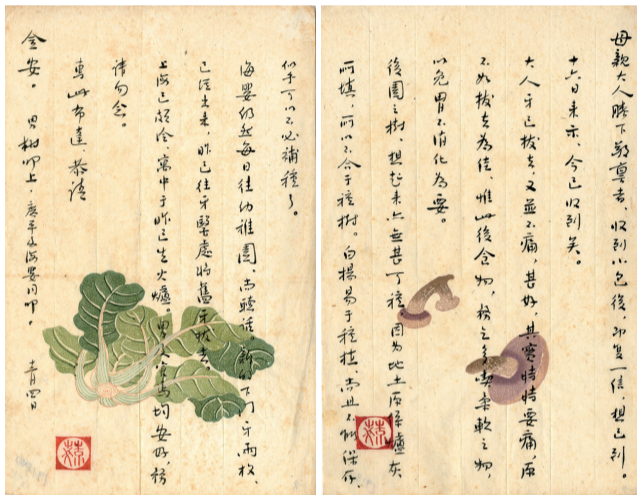 母親大人膝下敬稟者，收到小包後，即復一信，想已到。
十六日來示，今已收到矣。
大人牙已拔去，又並不痛，甚好，其實時時要痛，原
不如拔去為佳，惟此後食物，務乞多喫柔軟之物，
以免胃不消化為要。
後園之樹，想起來亦無甚可種，因為地土原係爐灰
所填，所以不合于種樹。白楊易于種植，尚且不能保存，
似乎可以不必補種了。
海嬰仍然每日往幼稚園，尚聽話。新的下門牙兩枚，
已經出來，昨已往牙醫處將舊牙拔去。
上海已頗冷，寓中于昨已生火爐。男及害馬均安好，務
請勿念。
專此布達，恭請
金安。 男樹叩上，廣平及海嬰同叩。 十二月四日